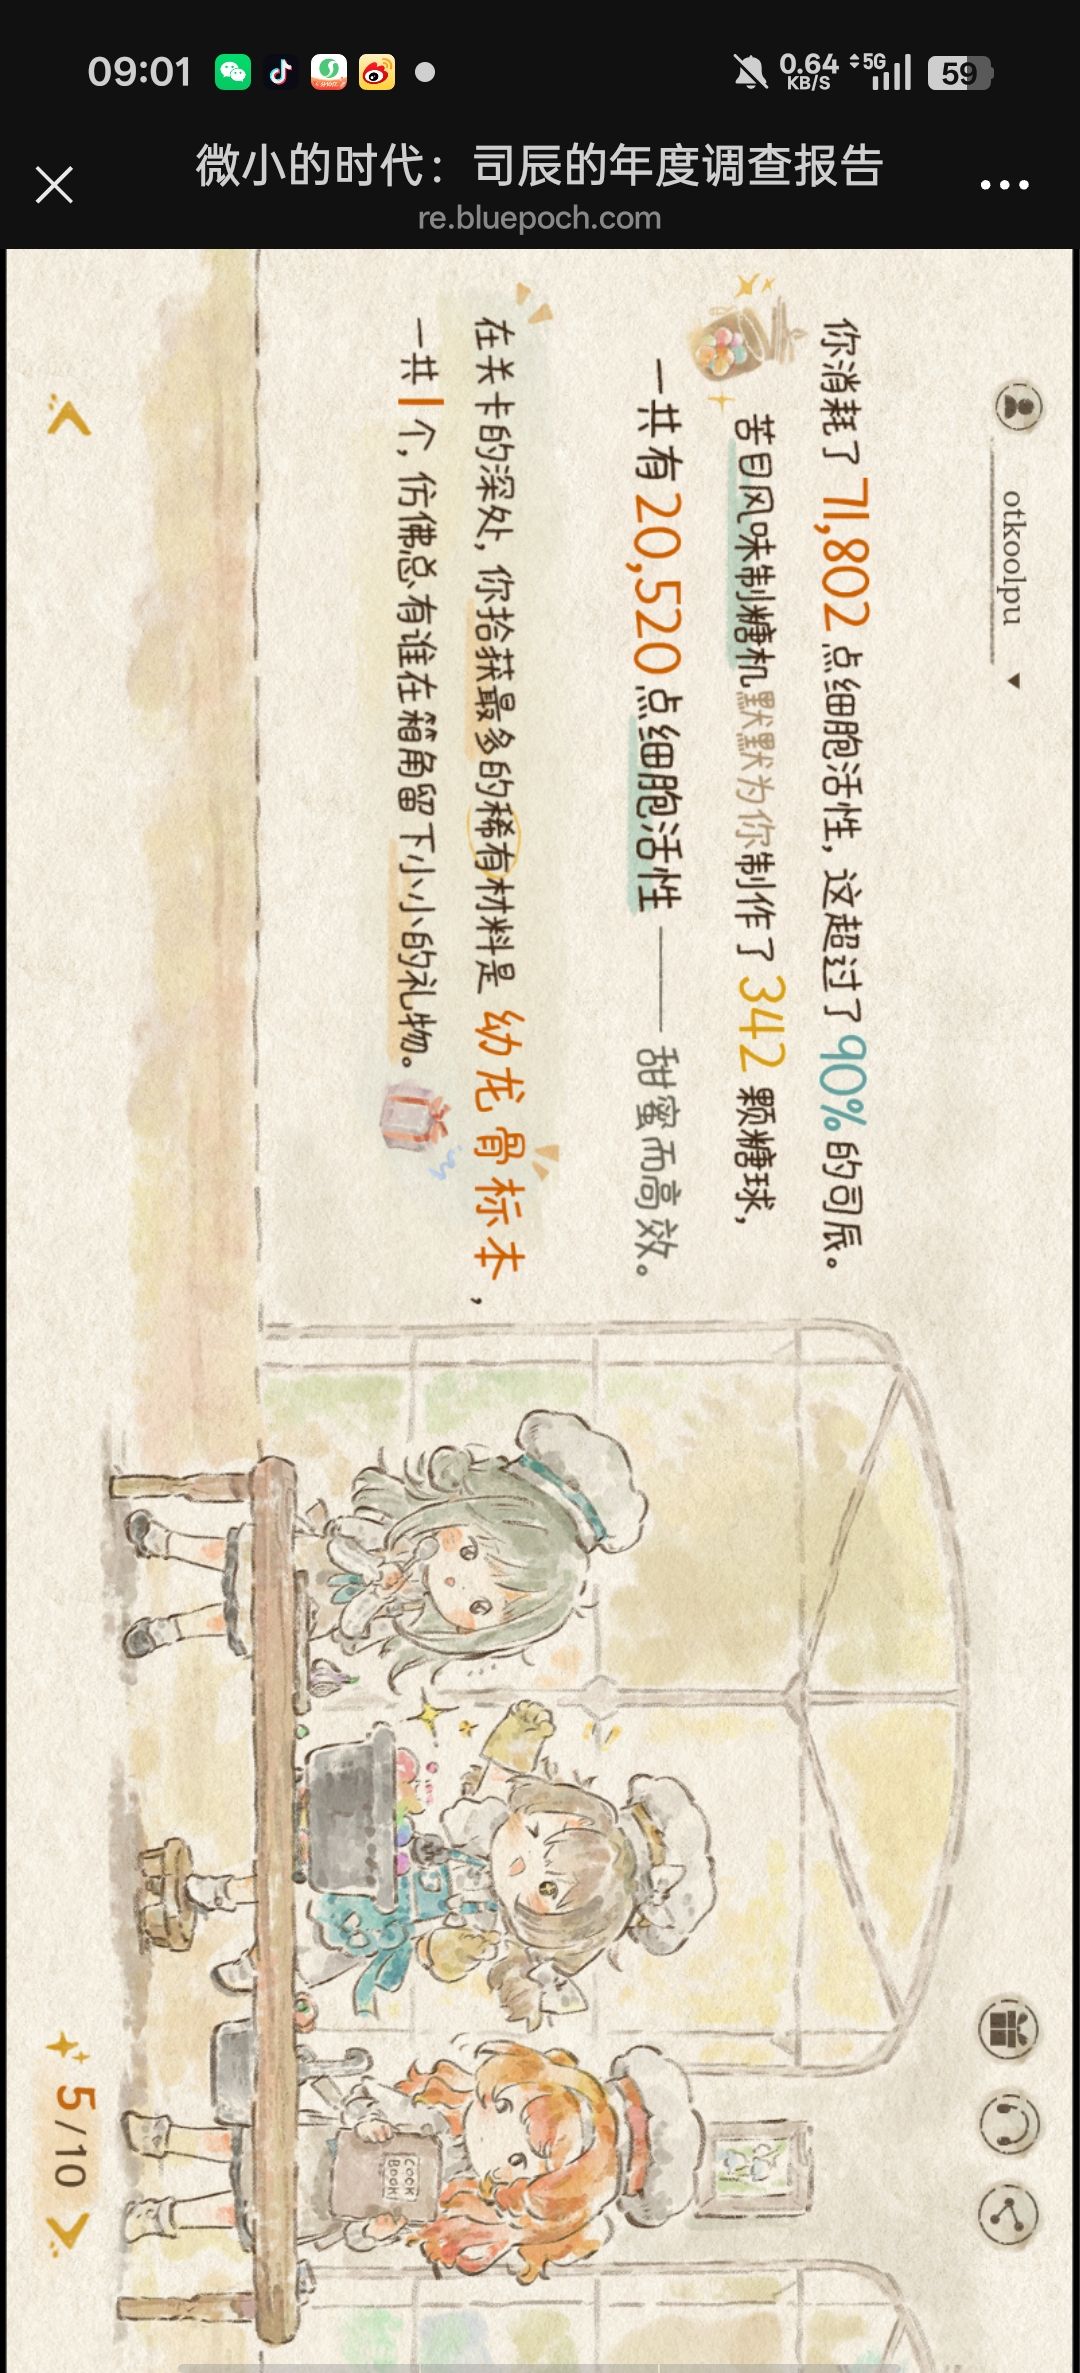 09:01
0.64 KB/S
5G
59
微小的时代：司辰的年度调查报告
re.bluepoch.com
otkoolpu
你消耗了71,802点细胞活性，这超过了90%的司辰。
苦日风味制糖机默默为你制作了342颗糖球，
一共有20,520点细胞活性——甜蜜而高效。
在关卡的深处，你拾获最多的稀有材料是 幼龙骨标本，
一共1个，仿佛总有谁在箱角留下小小的礼物。
COOK
BOOK!
5/10